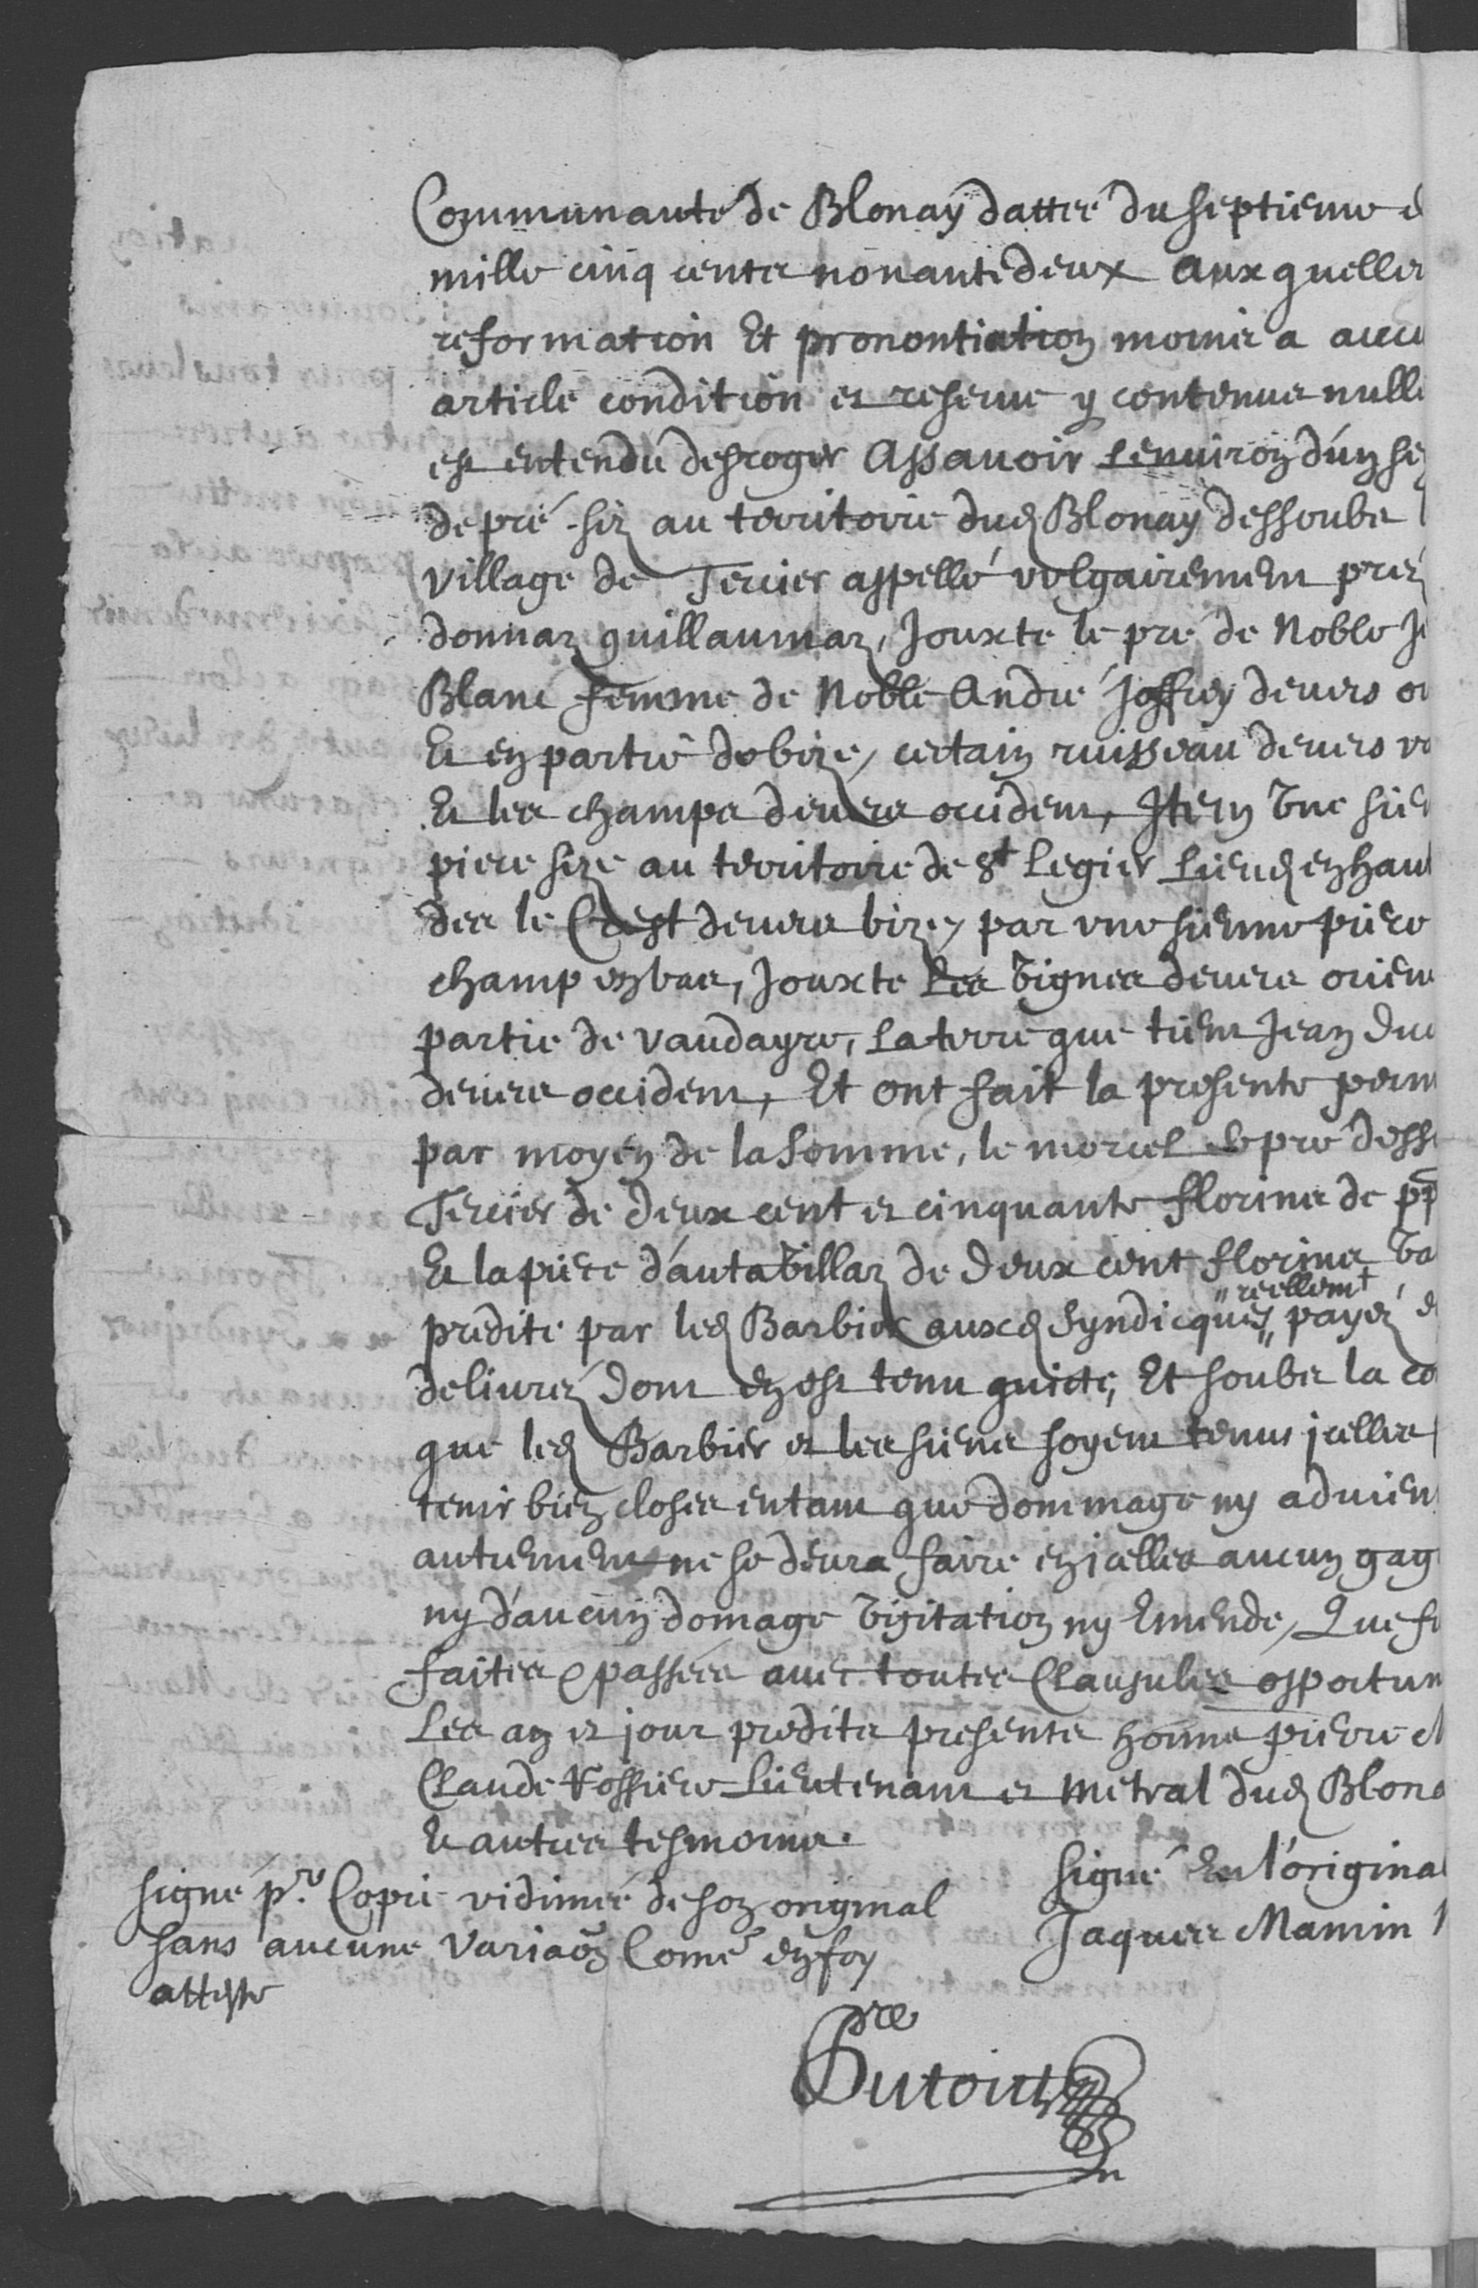 Communauté de Blonay dattée du septieme d
mille cinq cents nonante deux Aux quelles
reformation Et pronontiation moins a aucu
article condition et reserve y contenue null
est entendu desroger Assavoir Lenviron d'un se
de pré siz au territoire dud Blonay dessoubs
village de Tercier appellé volgairement prez
donnaz guillaumaz, Jouxte le pré de Noble Je
Blanc femme de Noble André Joffrey devers o
Et en partie de bize, certain ruisseau devers v
Et les champs devers occident, Item Une sien
piece size au territoire de St Legier Lieud en haut
des le Crest devers bize, par une sienne piece
champ en bas, Jouxte Les Vignes devers orien
partie de vaudayre, La terre que tient Jean Du
devers occident, Et ont fait la presente perm
par moyen de la Somme, le morcel de pré dess
Tercier de deux cent et cinquante florins de pp
Et la piece d'autavillaz de deux cent florins Va
predite par led Barbier auxd Syndicques "reellemt" payéz d
delivréz Dont en est tenu quicte, Et soubs la co
que led Barbier et les siens soyent tenus jcelles
tenir bien closes entant que dommage ny advien
autrement ne se devra faire en jcelles aucun gag
ny d'aucun domage Visitation ny Emende, Que f
faites & passées avec toutes Clausules opportun
Les an et jour predits presents honne pierre
Claude Vossiere Lieutenant et metral dud Blona
Et autres tesmoins.
Signé En l'origina
Jaques Mamin
signé pr. Copie vidimée de son original
sans aucune Variaon Come en foy
atteste
Dutoict